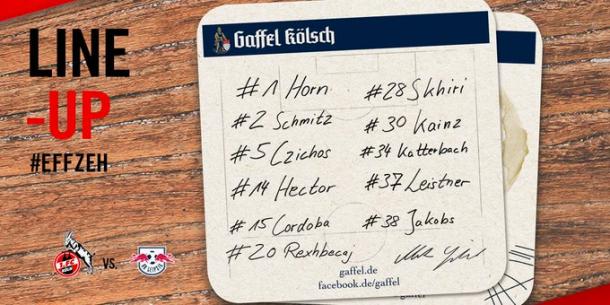 LINE
-UP
#EFFZEH
1. FC KÖLN
VS.
RB LEIPZIG
Gaffel Kölsch
#1 Horn
#2 Schmitz
#5 Czichos
#14 Hector
#15 Cordoba
#20 Rexhbecaj
#28 Skhiri
#30 Kainz
#34 Katterbach
#37 Leistner
#38 Jakobs
gaffel.de
facebook.de/gaffel